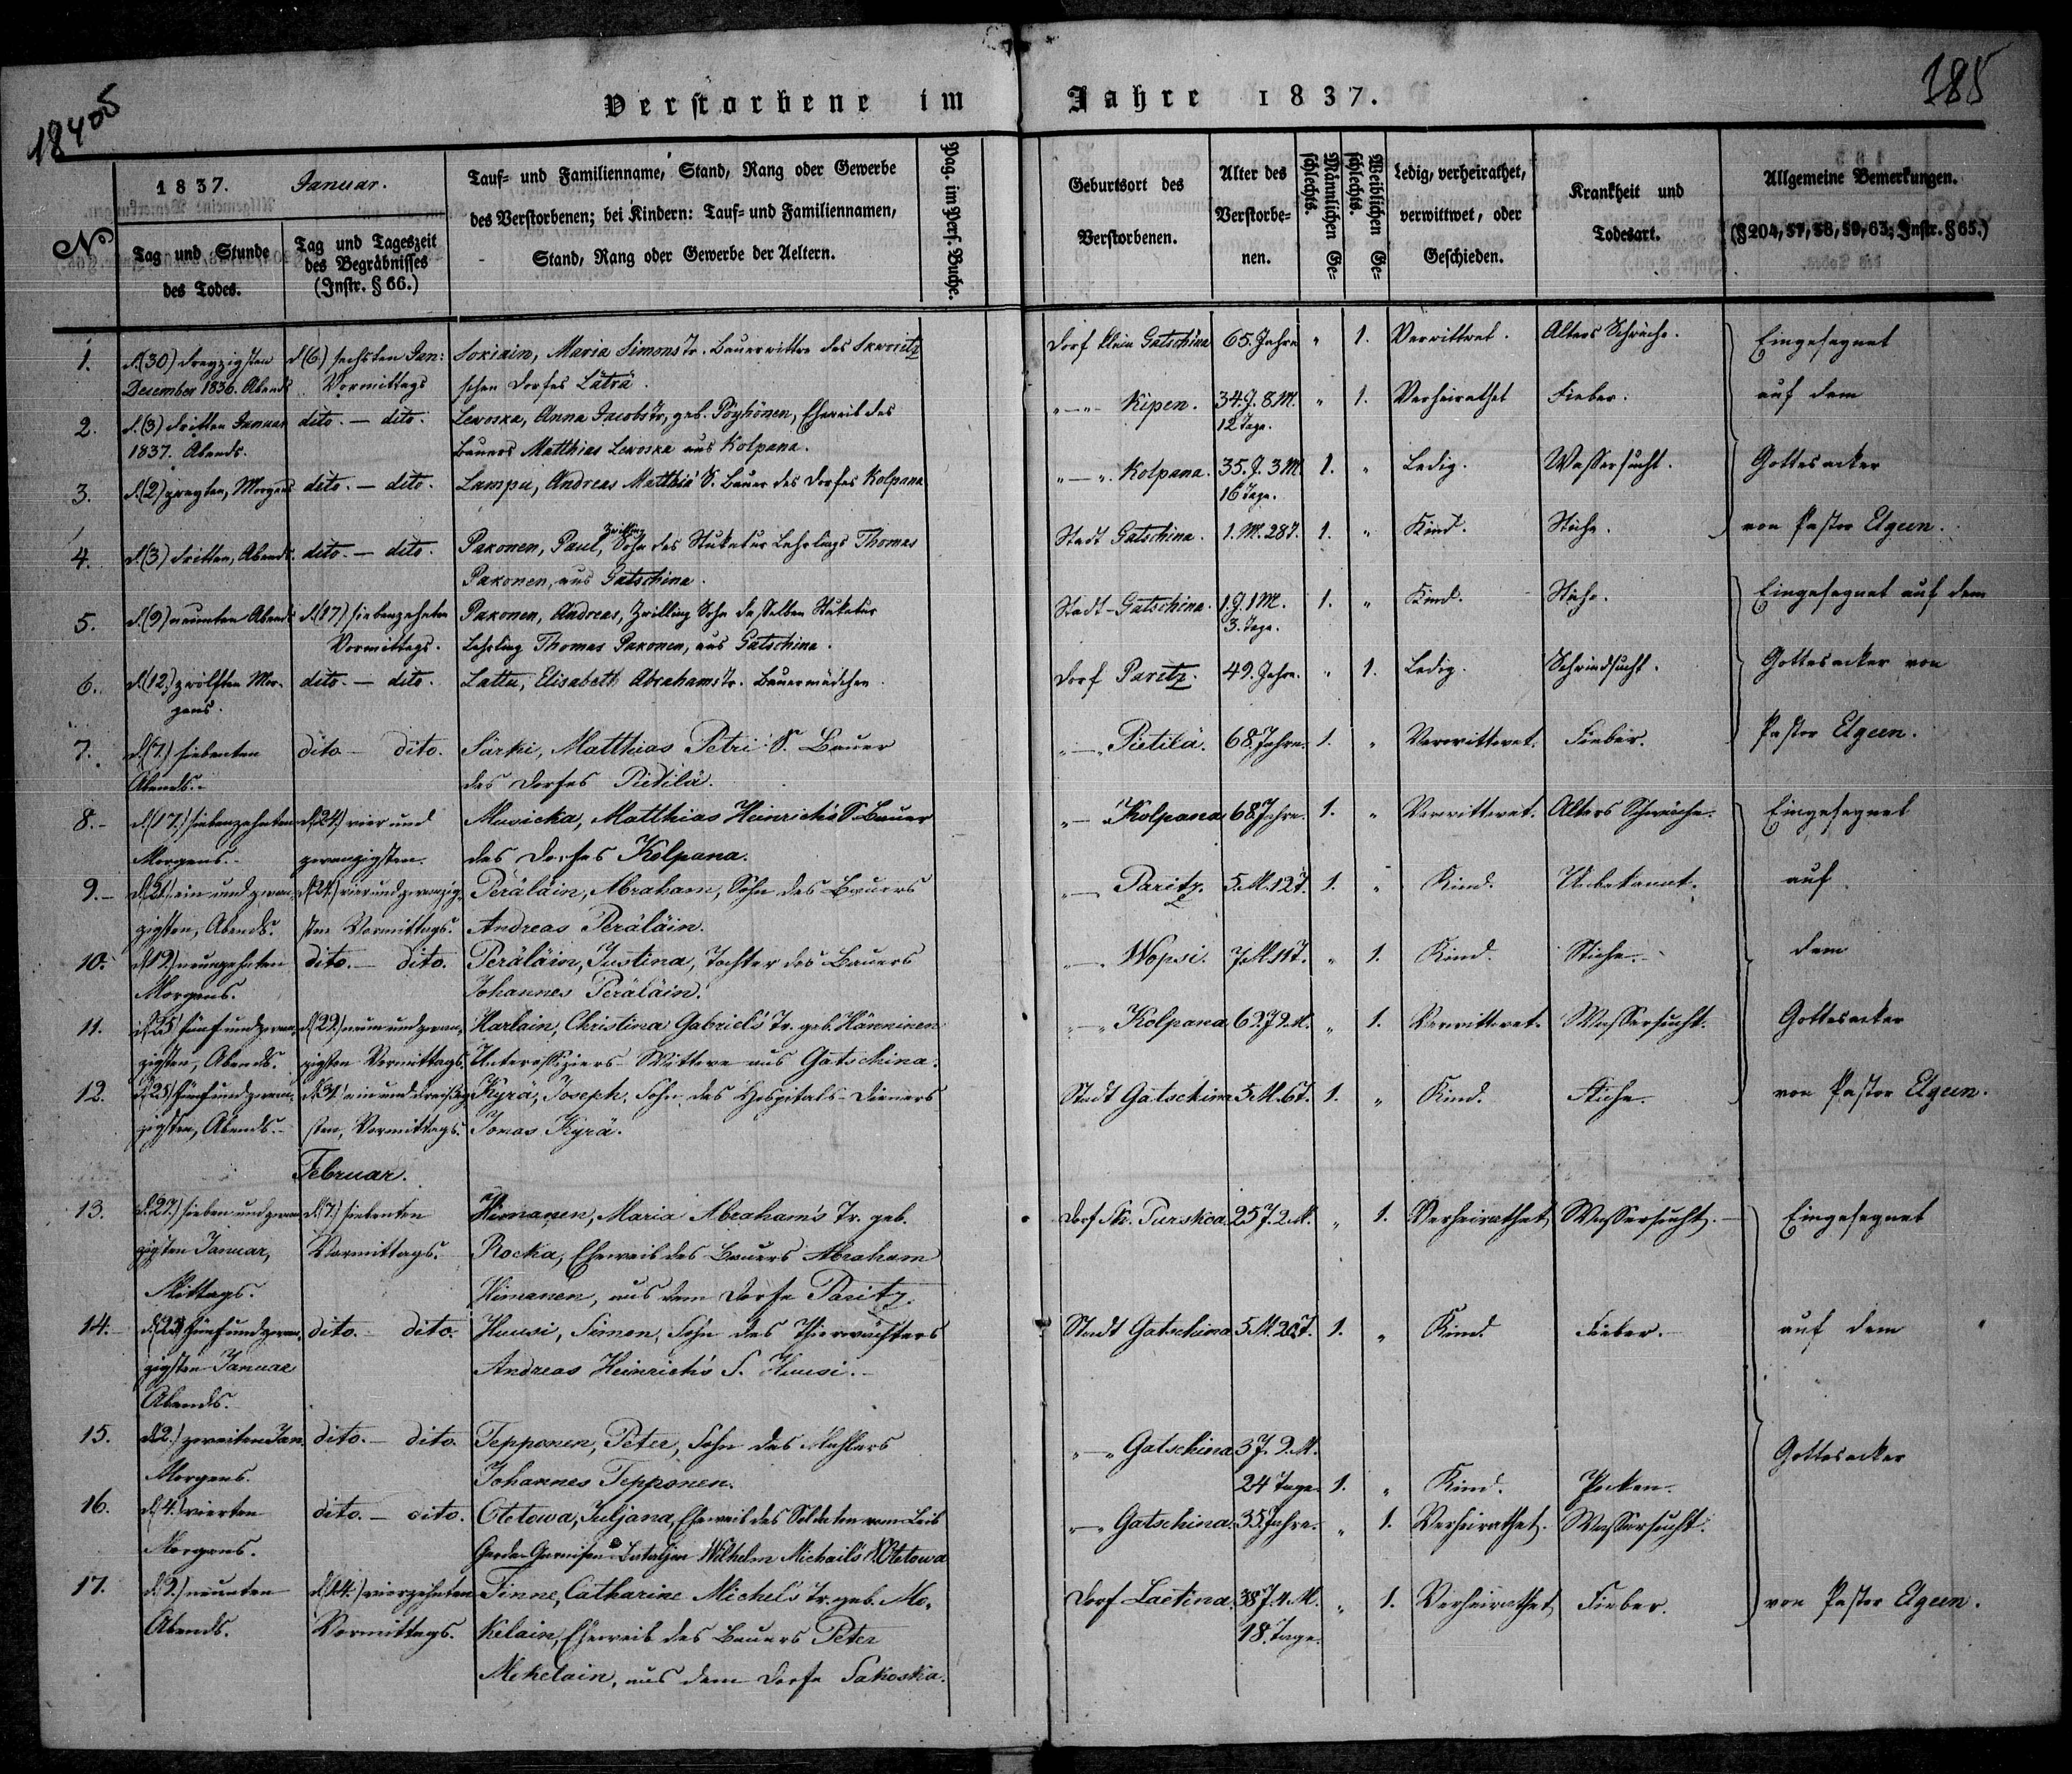 18405
185
Verstorbene im Jahre 1837.
No
1837. Januar.
Tag und Stunde des Todes.
Tag und Tageszeit des Begräbnisses (Instr. § 66.)
Tauf- und Familienname, Stand, Rang oder Gewerbe
des Verstorbenen; bei Kindern: Tauf- und Familiennamen,
Stand, Rang oder Gewerbe der Aeltern.
Pag. im Pers. Buche.
Geburtsort des Verstorbenen.
Alter des Verstorbenen.
Männlichen Geschlechts.
Weiblichen Geschlechts.
Ledig, verheirathet, verwittwet, oder Geschieden.
Krankheit und Todesart.
Allgemeine Bemerkungen.
(§ 204, 57, 58, 59, 63; Instr. § 65.)
1. d. (30) dreyzigsten d (6) sechsten Jan: Maria Simons Tr. Bauerwittwe des Skworitz Dorf klein Gatschina 65. Jahre " 1. Verwittwet. Alters Schwäche. Eingesegnet
December 1836. Abends Vormittags schen Dorfes Läträ.
2. d. (3) dritten Januar dito. — dito. Lewoska, Anna Jacobs Tr, geb. Pöyhönen, Eheweib des "—"— Kipen. 34. J. 8 M. " 1. Verheirathet Fieber. auf dem
1837. Abends. Bauers Matthias Lewoska aus Kolpana. 12 Tage.
3. d. (2) zweyten, Morgens dito. — dito. Lampu, Andreas Matthiä S. Bauer des Dorfes Kolpana "—". Kolpana. 35. J. 3 M 1. " Ledig. Wassersucht. Gottesacker
16 Tage.
4. d. (3) dritten, Abends. dito. — dito. Paxonen, Paul, Zwilling Sohn des Stukatur Lehrlings Thomas Stadt Gatschina. 1. M. 28 T. 1. " Kind. Stiche. von Pastor Elgeen.
Paxonen, aus Gatschina.
5. d. (9) neunten Abends d. (17) siebenzehnten Paxonen, Andreas, Zwilling Sohn desselben Stukatur Stadt-Gatschina. 1. J. 1 M. 1. " Kind. Stiche. Eingesegnet auf dem
Vormittags. Lehrling Thomas Paxonen, aus Gatschina. 3. Tage.
6. d. (12.) zwölften Mor- dito. — dito. Lattu, Elisabeth Abrahams Tr. Bauermädchen. Dorf Paritz. 49. Jahre. " 1. Ledig. Schwindsucht. Gottesacker von
gens.
7. d. (7.) siebenten dito — dito. Särki, Matthias Petri S. Bauer "—" Pietilä. 68. Jahre. 1. " Verwittwet. Fieber. Pastor Elgeen.
Abends. des Dorfes Pietilä.
8. d. (17.) siebenzehnten d. (24.) vier und Musicka, Matthias Heinrich's S. Bauer "— Kolpana 68 Jahre. 1. " Verwittwet. Alters Schwäche. Eingesegnet
Morgens. zwanzigsten. des Dorfes Kolpana.
9. d. (21.) ein und zwan- d. (24.) vier und zwanzig- Peräläin, Abraham, Sohn des Bauers "— Paritz. 5. M. 12 T. 1. " Kind. Unbekannt. auf
zigsten, Abends. sten Vormittags. Andreas Peräläin.
10. d. (19.) neunzehnten dito. — dito. Peräläin, Justina, Tochter des Bauers "—. Wopsi. 7 M. 11 T. " 1. Kind. Stiche. dem
Morgens. Johannes Peräläin.
11. d. (25.) fünf und zwan- d. (29.) neun und zwan- Harlain, Christina Gabriel's Tr. geb. Hänninen "—" Kolpana 62 J. 2 M. " 1. Verwittwet. Wassersucht. Gottesacker
zigsten, Abends. zigsten Vormittags. Unteroffiziers-Wittwe aus Gatschina.
12. d. (25.) fünf und zwan- d. 31. ein und dreißig- Kyrä, Joseph, Sohn des Hospitals-Dieners Stadt Gatschina 5 M. 6 T. 1. " Kind. Stiche. von Pastor Elgeen.
zigsten, Abends. sten, Vormittags. Jonas Kyrä.
Februar.
13. d. 27.) sieben und zwan- d. (7.) siebenten Himanen, Maria Abraham's Tr. geb. Dorf Purskoa 25 J. 2 M. " 1. Verheirathet Wassersucht. Eingesegnet
zigsten Januar, Vormittags. Rocka, Eheweib des Bauers Abraham
Mittags. Himanen, aus dem Dorfe Paritz.
14. d. (25) fünf und zwan- dito. — dito. Huusi, Simon, Sohn des Thierwächters Stadt Gatschina 5 M. 20 T. 1. " Kind. Fieber. auf dem
zigsten Januar Andreas Heinrich's S. Huusi.
Abends.
15. d. 2.) zweiten Jan. dito. — dito. Tepponen, Peter, Sohn des Mahlers "—" Gatschina 3 J. 2 M. Gottesacker
Morgens. Johannes Tepponen. 24 Tage. 1. " Kind. Pocken.
16. d. 4.) vierten dito. — dito. Ototowa, Juljana, Eheweib des Soldaten vom Leib "—" Gatschina. 35 Jahre. " 1. Verheirathet. Wassersucht.
Morgens. Garde-Garnison Bataljon Wilhelm Michail's S. Ototowa
17. d. 9.) neunten d. (14.) vierzehnten Tinne, Catharine Michel's Tr. geb. Mo- Dorf Laetina. 38 J. 4 M. " 1. Verheirathet Fieber. von Pastor Elgeen.
Abends. Vormittags. kelain, Eheweib des Bauers Peter 18. Tage.
Mekelain, aus dem Dorfe Sakoska.